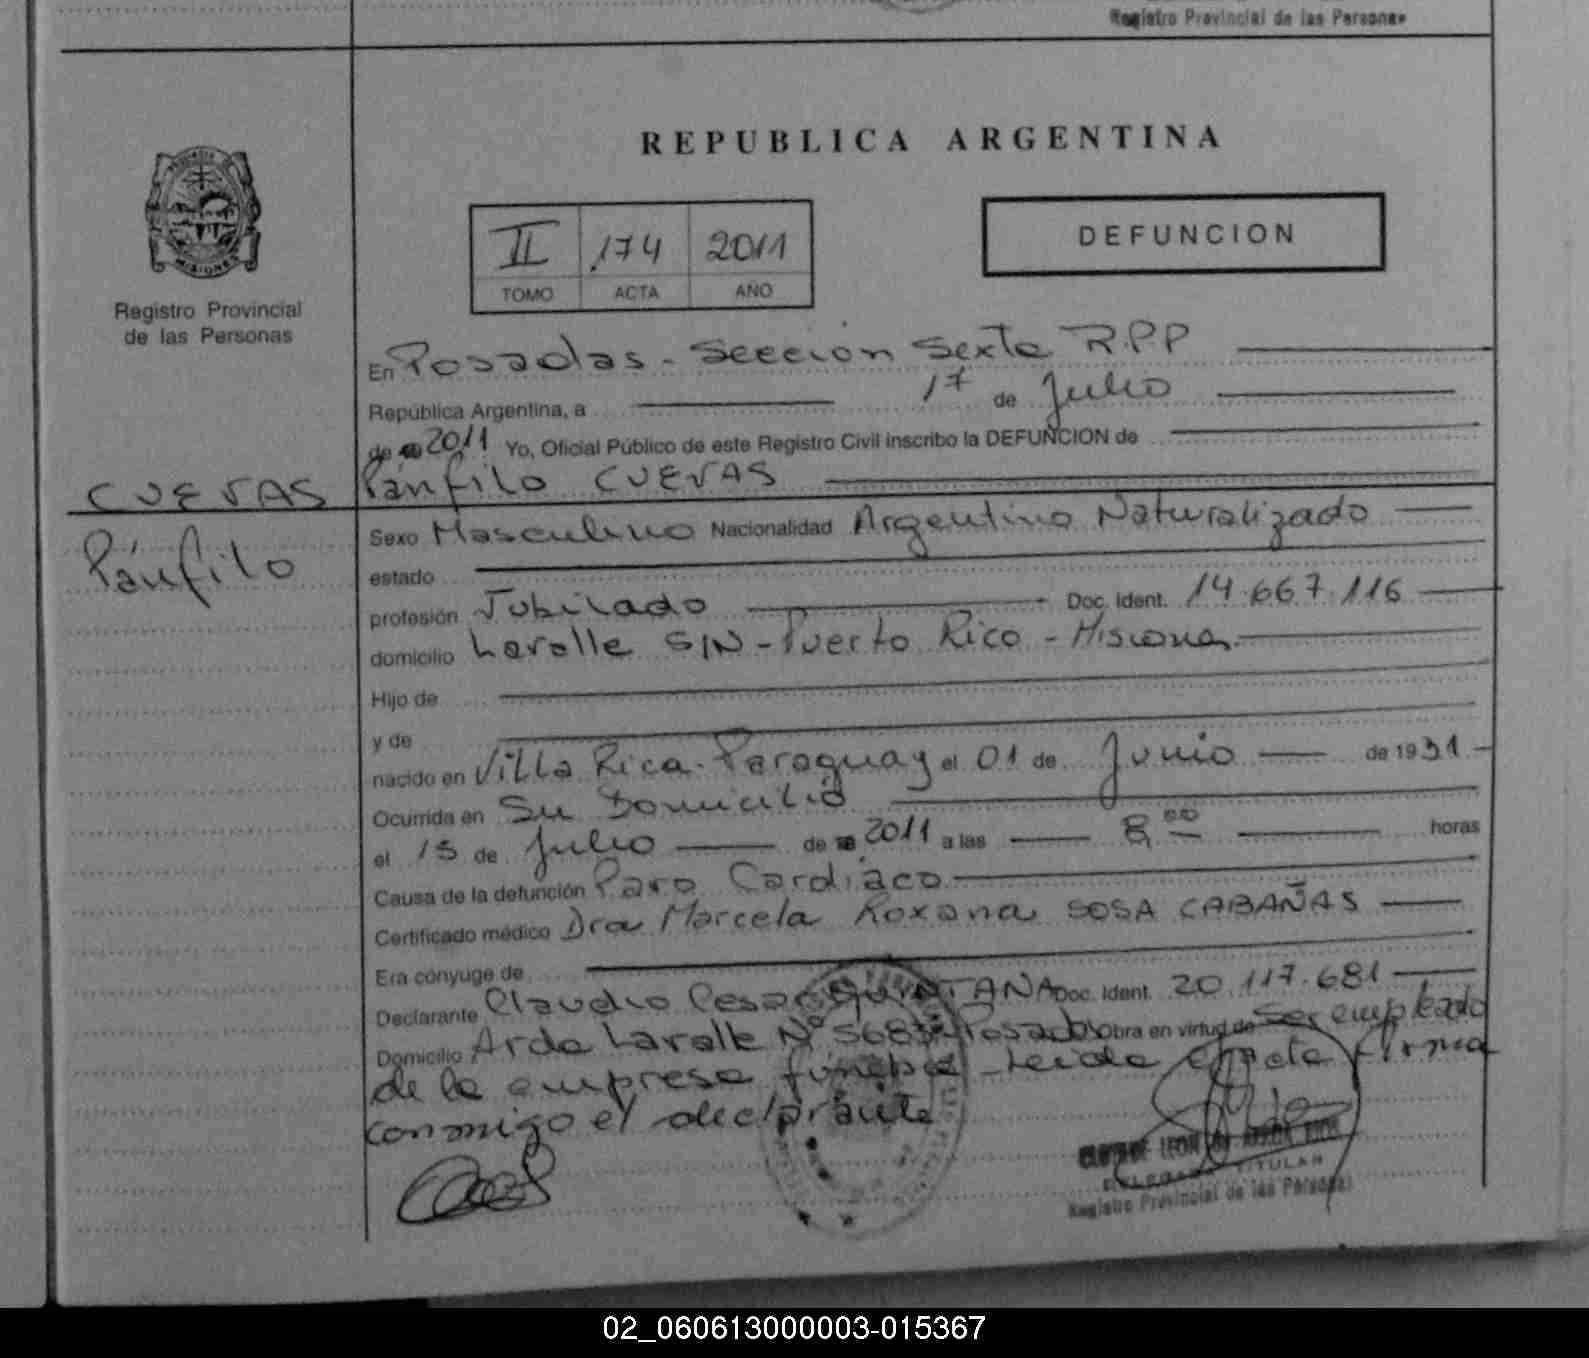 Registro Provincial de las Personas
REPUBLICA ARGENTINA
II 174 2011
TOMO ACTA AÑO
DEFUNCION
MISIONES
Registro Provincial
de las Personas
En Posadas - Sección Sexta R.P.P
República Argentina, a 17 de Julio
de 2011 Yo, Oficial Público de este Registro Civil inscribo la DEFUNCION de
Pánfilo CUEVAS
CUEVAS
Pánfilo
Sexo Masculino Nacionalidad Argentino Naturalizado
estado
profesión Jubilado Doc. Ident. 14.667.116
domicilio Lavalle S/N - Puerto Rico - Misiones
Hijo de
y de
nacido en Villa Rica - Paraguay el 01 de Junio de 1931
Ocurrida en Su Domicilio
el 15 de Julio de 2011 a las 8,00 horas
Causa de la defunción Paro Cardiaco
Certificado médico Dra Marcela Roxana SOSA CABAÑAS
Era cónyuge de
Declarante Claudio Cesar QUINTANA Doc. Ident. 20.117.681
Domicilio Avda Lavalle Nº 5683 Posadas Obra en virtud de Ser empleado
de la empresa fúnebre - Leida el acta firma
conmigo el declarante
TITULAR
Registro Provincial de las Personas
02_060613000003-015367